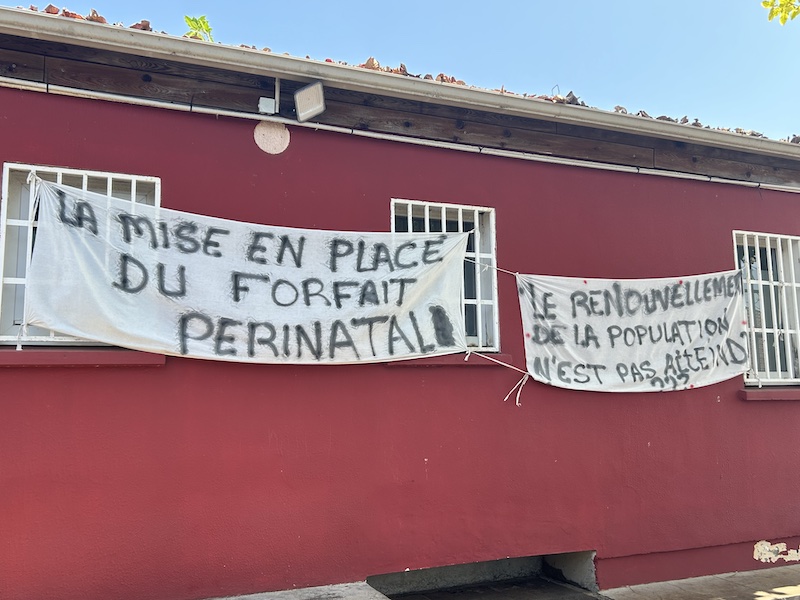 LA MISE EN PLACE
DU FORFAIT
PERINATAL
LE RENOUVELLEMENT
DE LA POPULATION
N'EST PAS